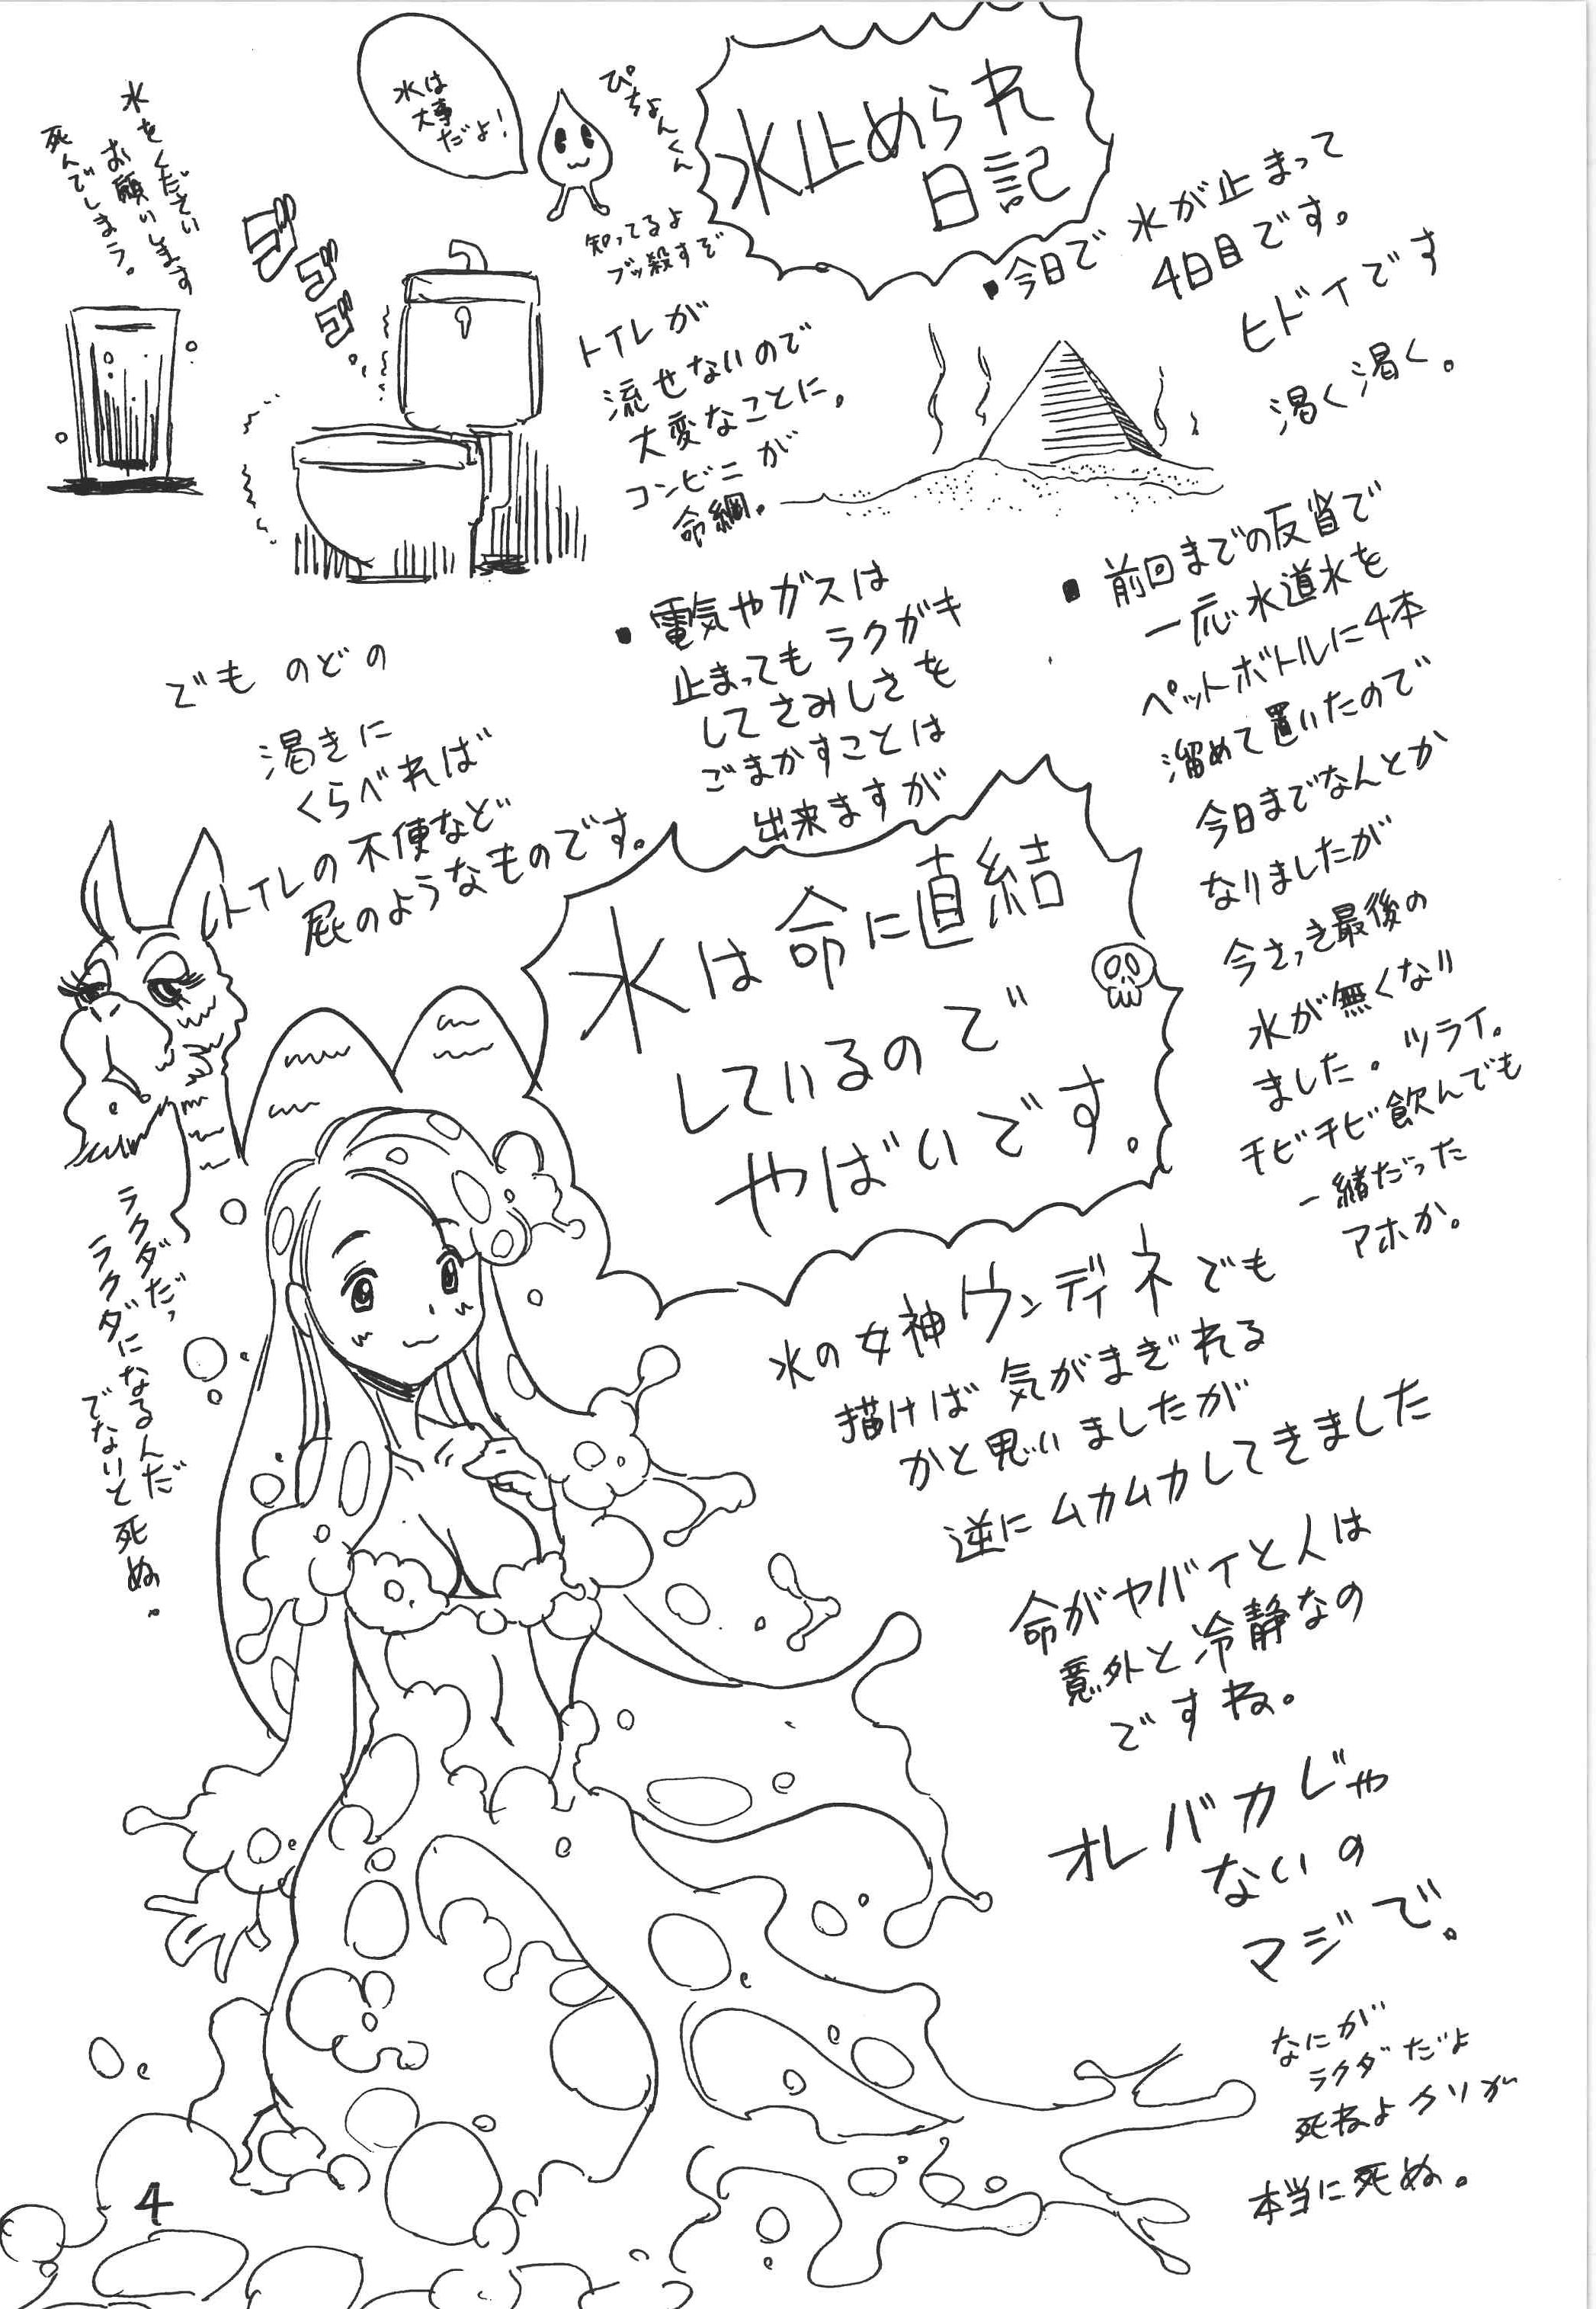 水止められ
日記
・今日で 水が止まって
4日目です。
ヒドイです
渇く渇く。
ぴちょんくん
水は
大事
だよ!
知ってるよ
ブッ殺すぞ
トイレが
流せないので
大変なことに。
コンビニが
命綱。
ゴゴゴゴ。
水をください
お願いします
死んでしまう。
・前回までの反省で
一応水道水を
ペットボトルに4本
溜めて置いたので
今日までなんとか
なりましたが
今さっき最後の
水が無くなり
ました。ツライ。
チビチビ飲んでも
一緒だった
アホか。
・電気やガスは
止まってもラクガキ
してさみしさを
ごまかすことは
出来ますが
水は命に直結
しているので
やばいです。
でも のどの
渇きに
くらべれば
トイレの不便など
屁のようなものです。
ラクダだっ
ラクダになるんだ
でないと死ぬ。
水の女神ウンディネでも
描けば気がまぎれる
かと思いましたが
逆にムカムカしてきました
命がヤバイと人は
意外と冷静なの
ですね。
オレバカじゃ
ないの
マジで。
なにが
ラクダだよ
死ねよクソが
本当に死ぬ。
4